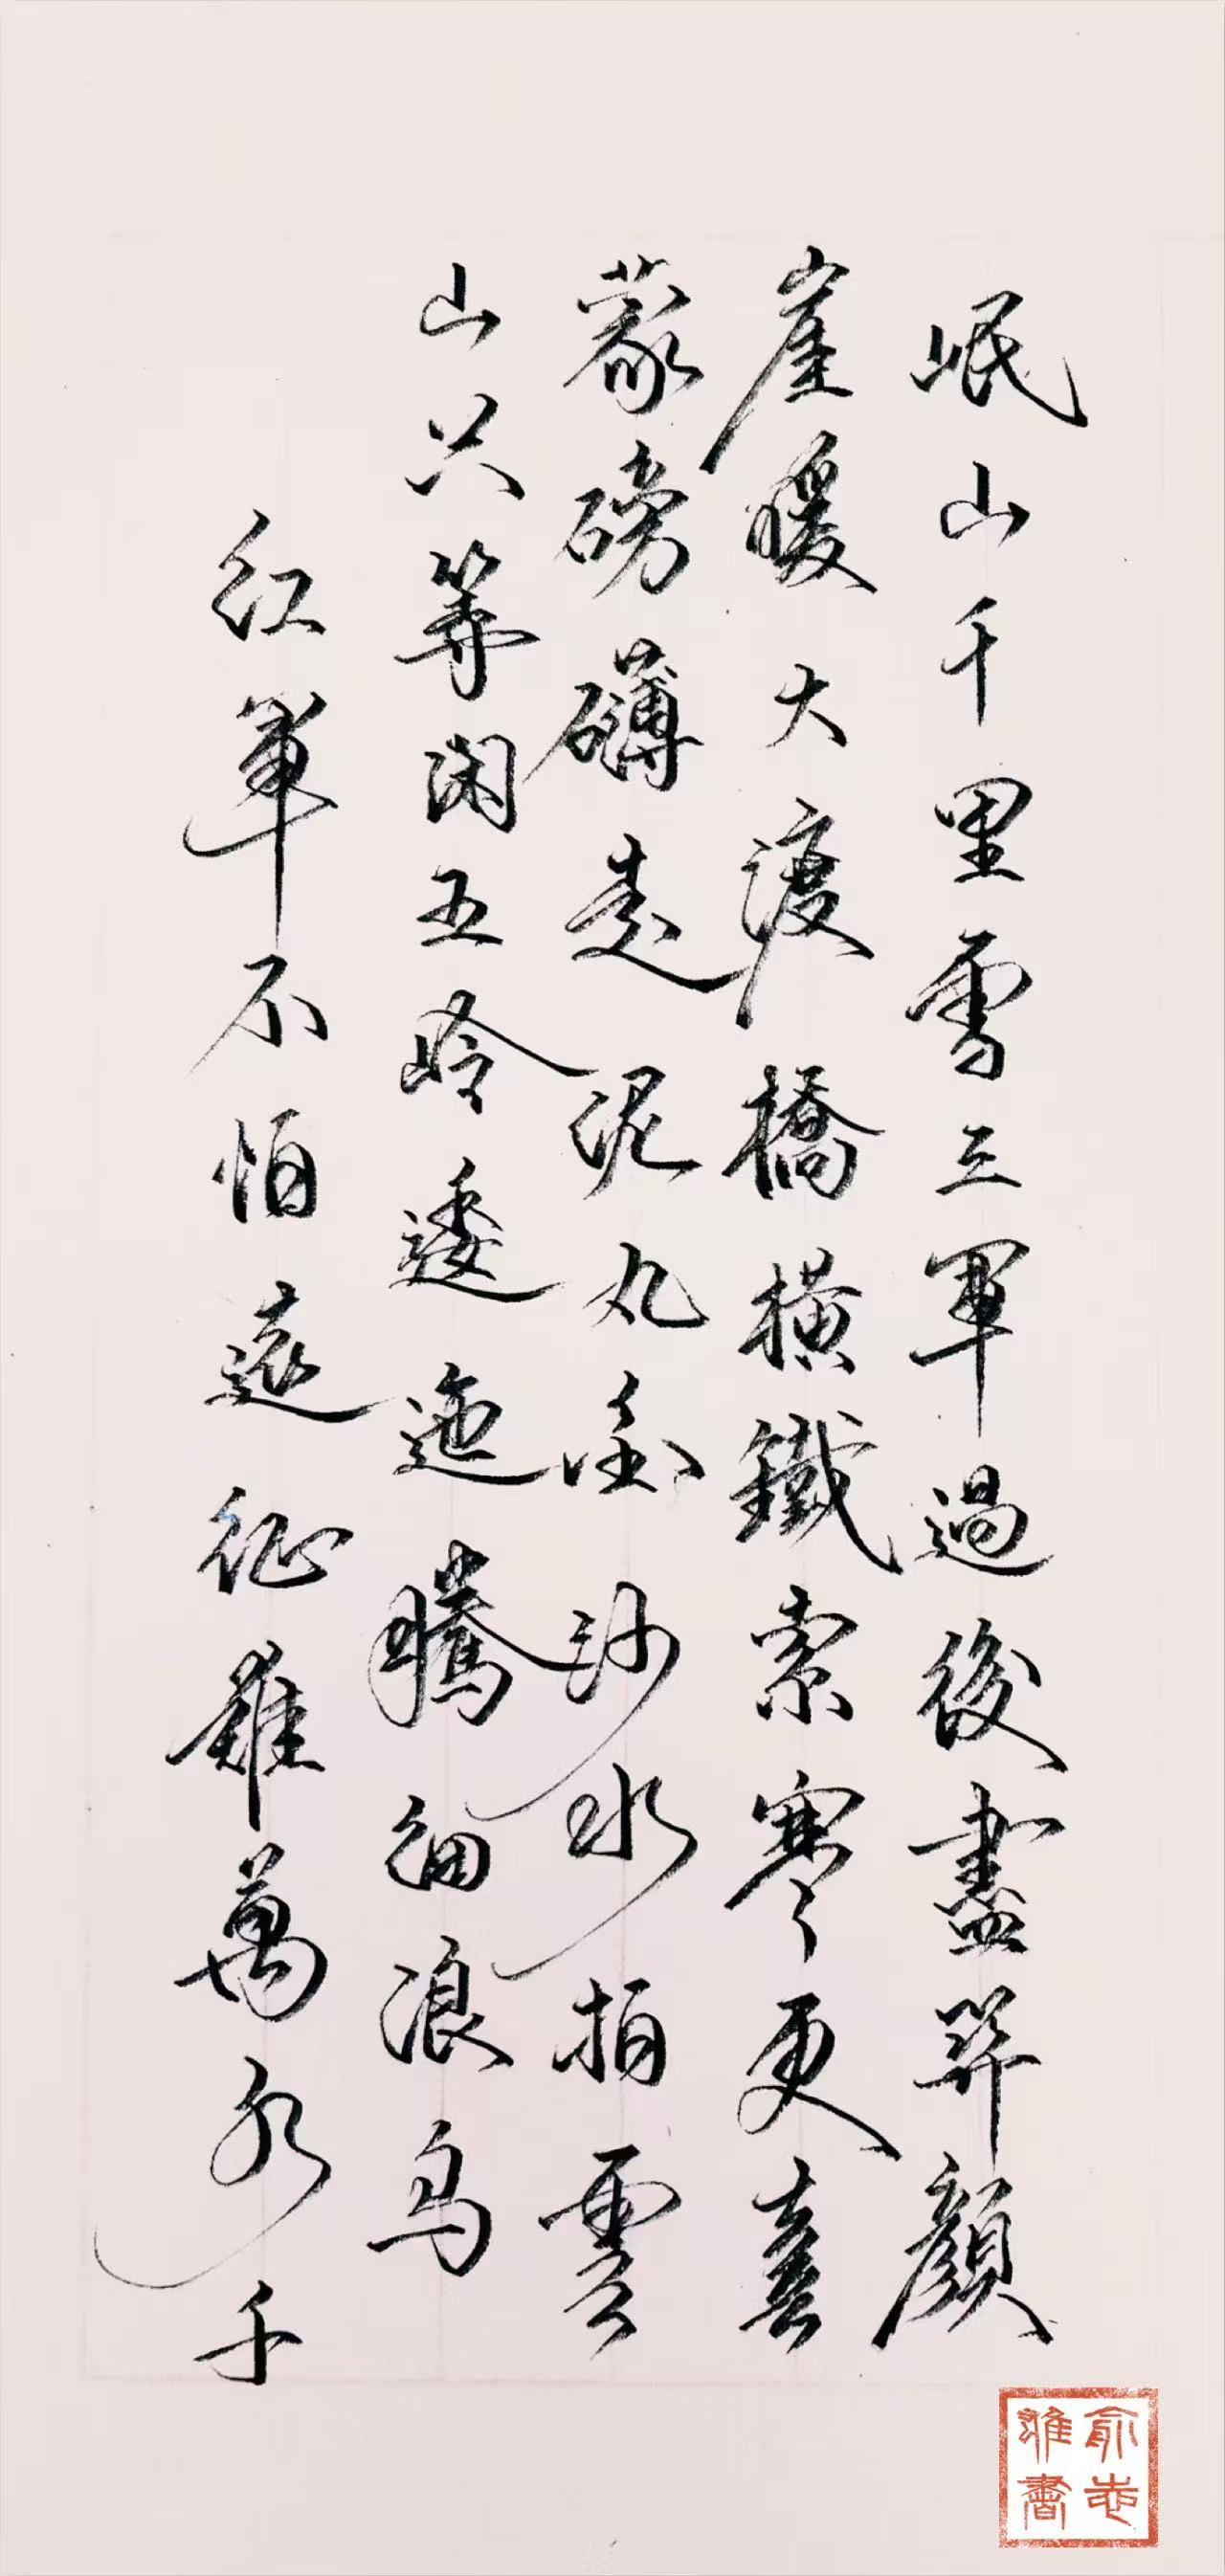 紅軍不怕遠征難萬水千
山只等閑五岭逶迤騰細浪烏
蒙磅礴走泥丸金沙水拍雲
崖暖大渡橋橫鐵索寒更喜
岷山千里雪三軍過後盡開顏
俞志
書